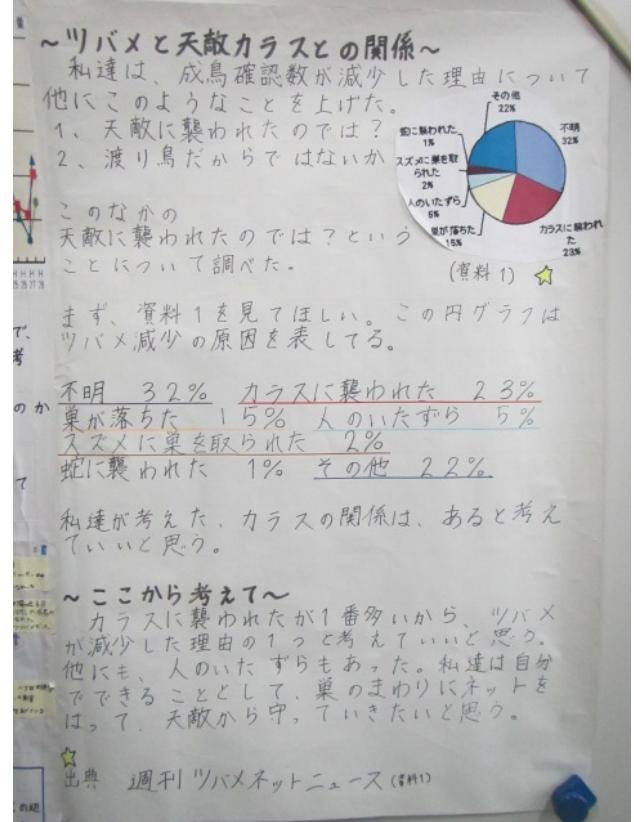 ～ツバメと天敵カラスとの関係～
私達は、成鳥確認数が減少した理由について
他にこのようなことを上げた。
1、天敵に襲われたのでは？
2、渡り鳥だからではないか
その他
22%
不明
32%
蛇に襲われた
1%
スズメに巣を取
られた
2%
人のいたずら
5%
巣が落ちた
15%
カラスに襲われ
た
23%
(資料1)
このなかの
天敵に襲われたのでは？という
ことについて調べた。
まず、資料1を見てほしい。この円グラフは
ツバメ減少の原因を表してる。
不明 32% カラスに襲われた 23%
巣が落ちた 15% 人のいたずら 5%
スズメに巣を取られた 2%
蛇に襲われた 1% その他 22%
私達が考えた、カラスの関係は、あると考え
ていいと思う。
～ここから考えて～
カラスに襲われたが1番多いから、ツバメ
が減少した理由の1つと考えていいと思う。
他にも、人のいたずらもあった。私達は自分
でできることとして、巣のまわりにネットを
はって、天敵から守っていきたいと思う。
出典 週刊ツバメネットニュース(資料1)
で、
考
のか
て